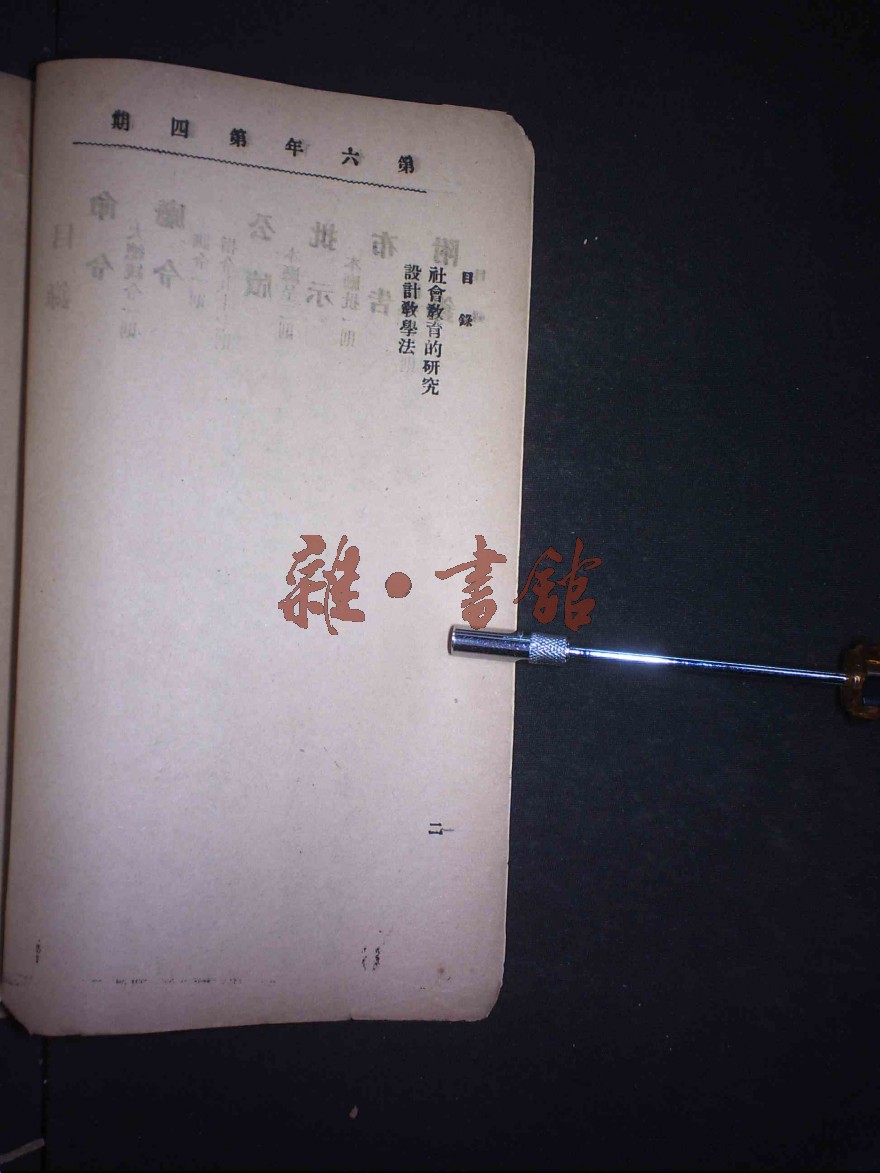 第六年第四期
目錄
社會教育的研究
設計教學法
二
雜·書館